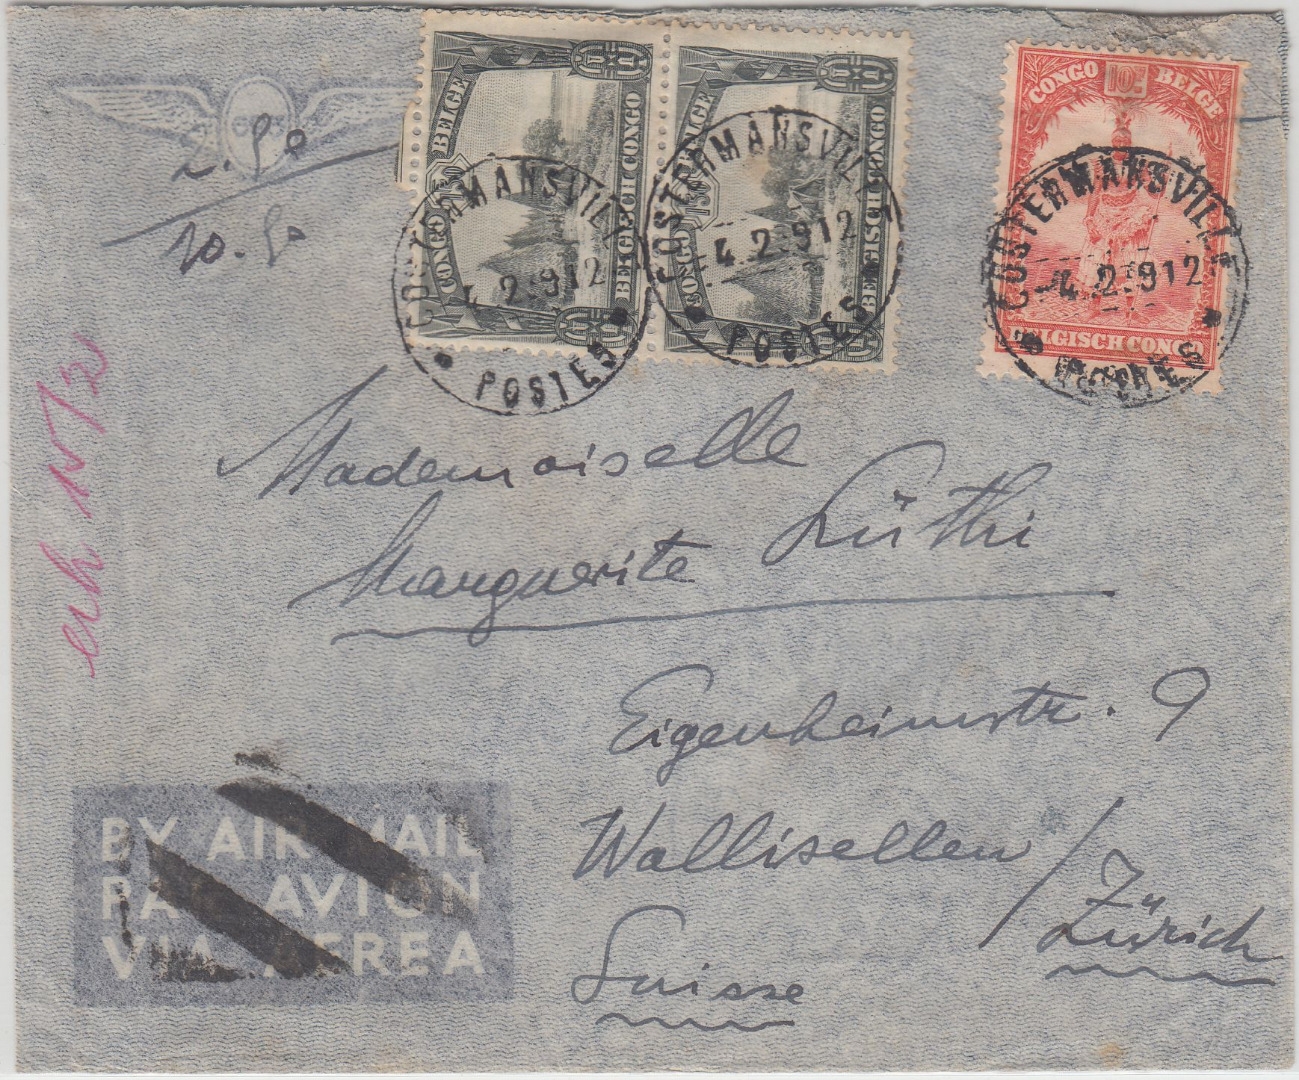 CONGO BELGE
BELGISCH CONGO
CONGO BELGE
BELGISCH CONGO
CONGO BELGE
10c
BELGISCH CONGO
COSTERMANSVILLE
4.2.912
POSTES
COSTERMANSVILLE
4.2.912
POSTES
COSTERMANSVILLE
4.2.912
POSTES
10.50
erh 15/2
Mademoiselle
Marguerite Lüthi
Eigenheimstr. 9
Wallisellen / Zürich
Suisse
BY AIR MAIL
PAR AVION
VIA AEREA